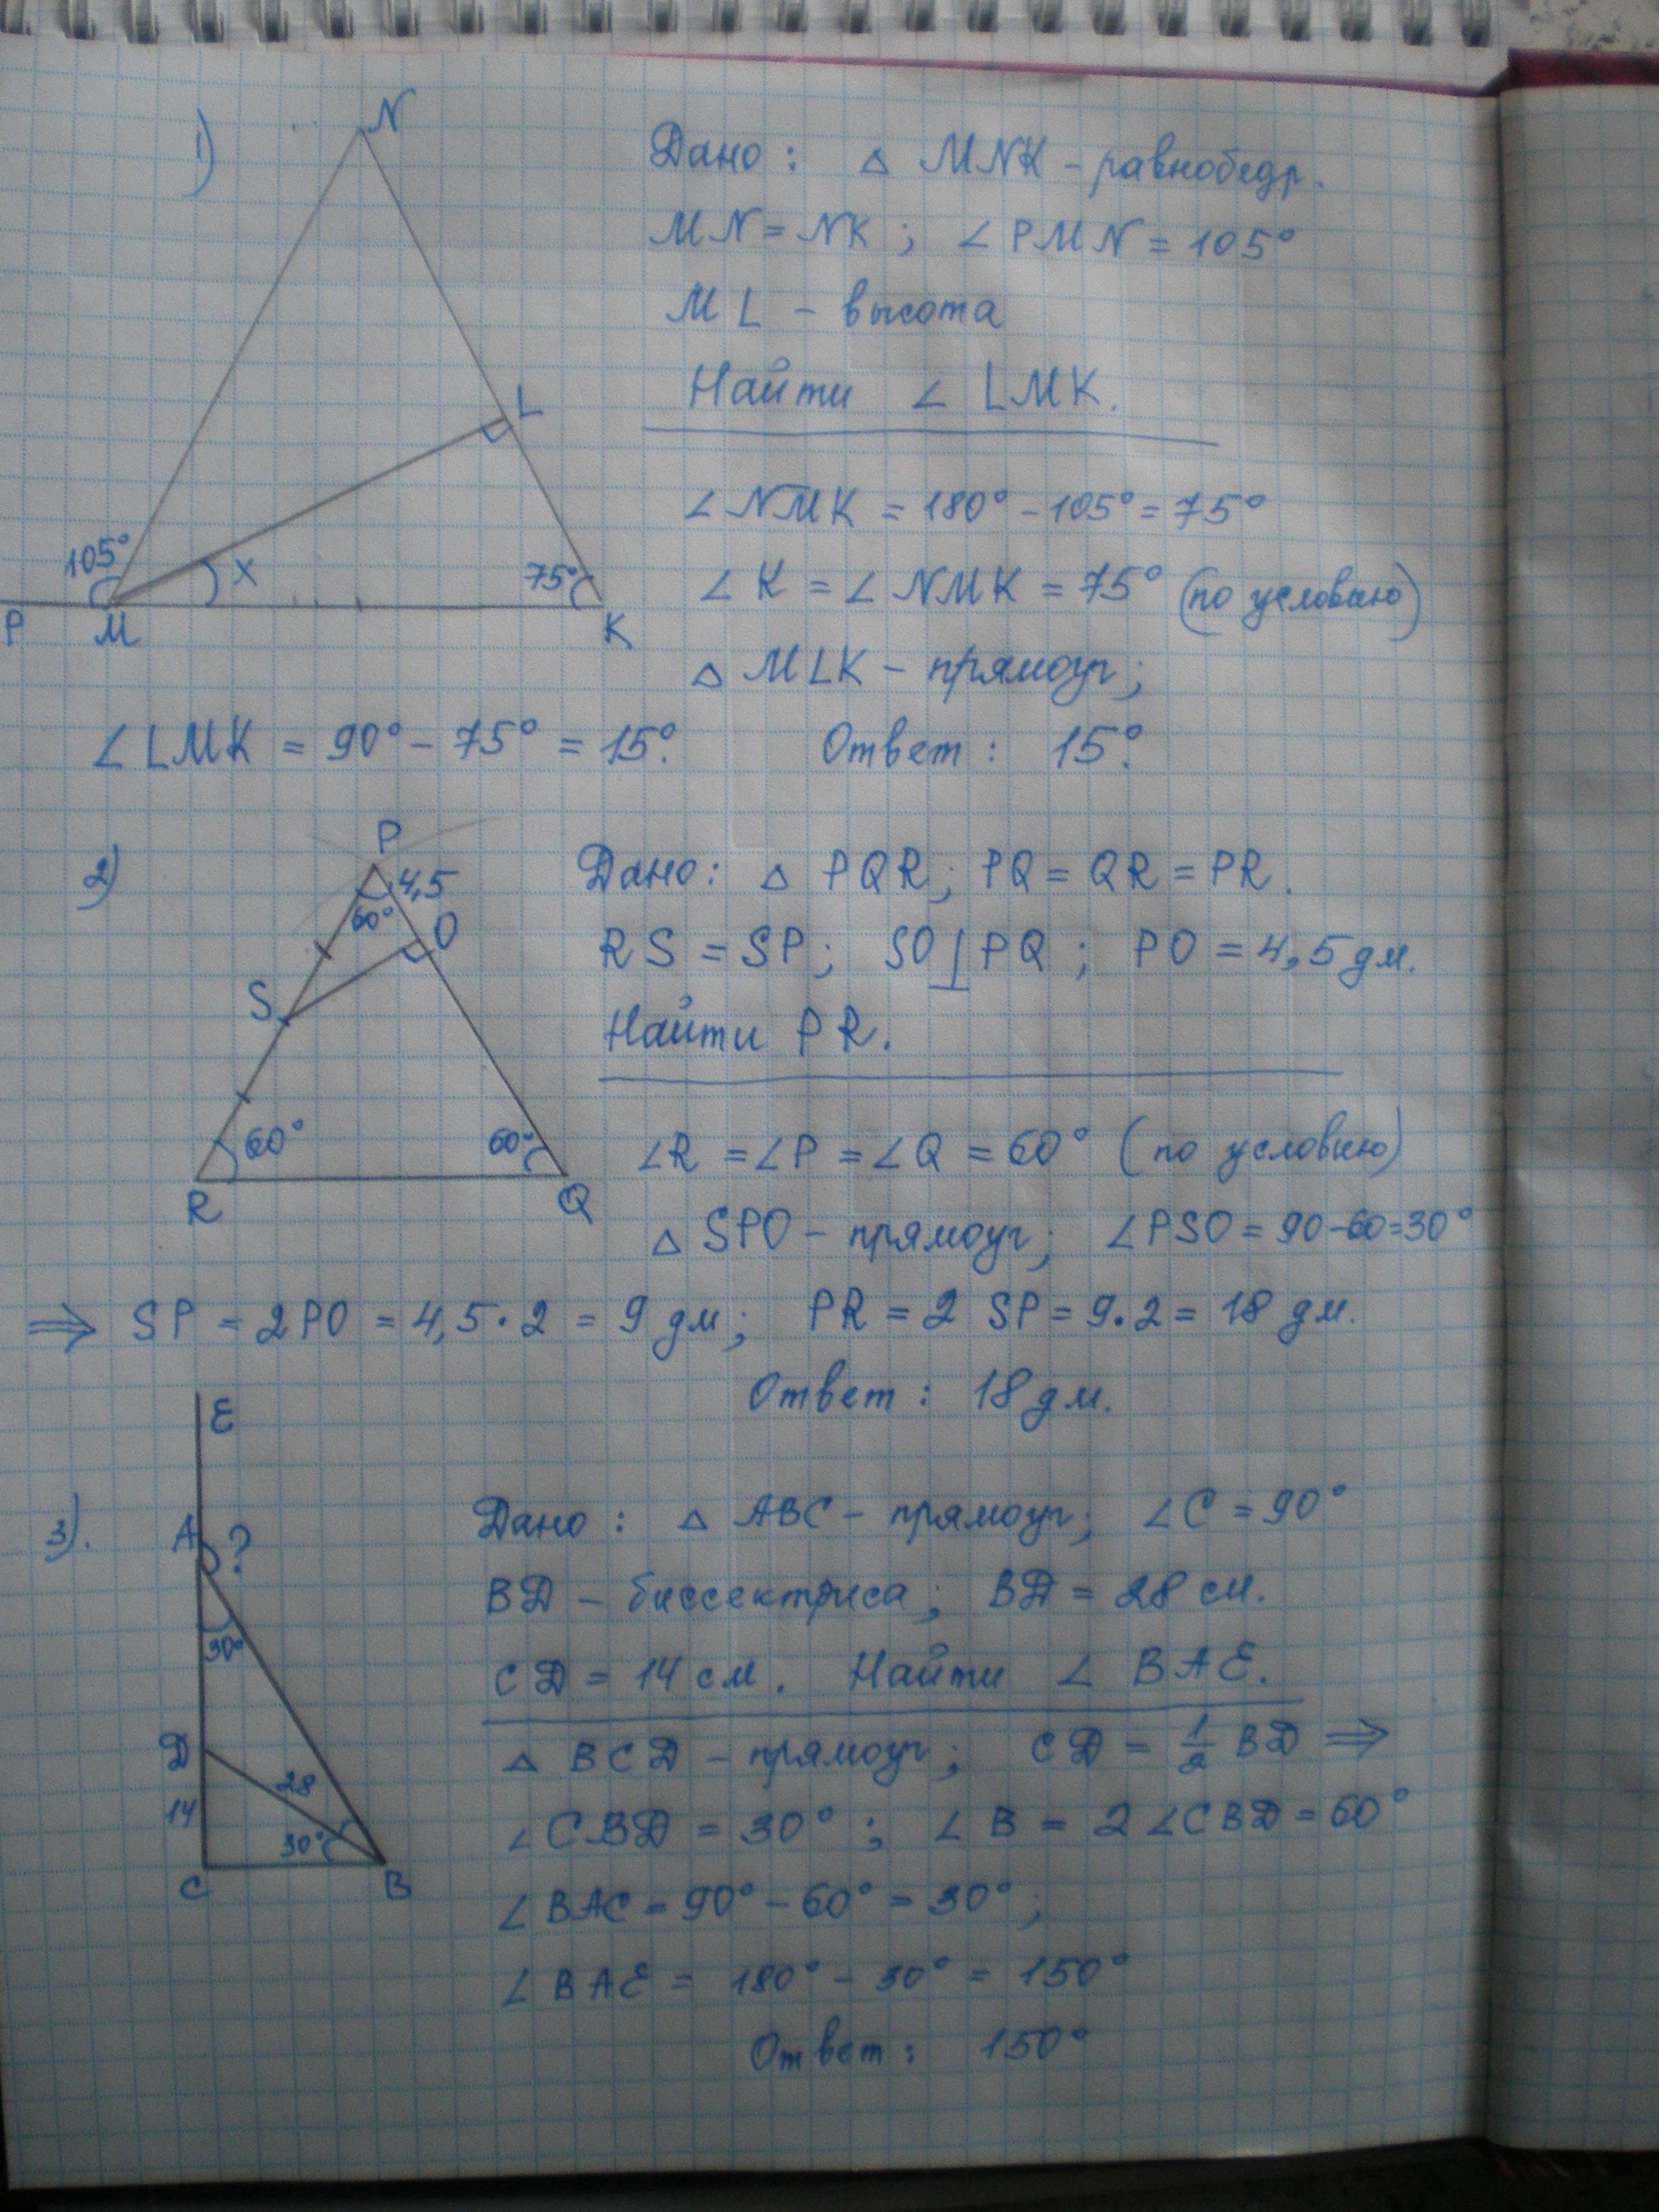 1)
N
Дано: △ MNK – равнобедр.
MN = NK; ∠PMN = 105°
ML – высота
Найти ∠ LMK.
L
105°
x
75°
P
M
K
∠NMK = 180° – 105° = 75°
∠K = ∠NMK = 75° (по условию)
△ MLK – прямоуг;
∠LMK = 90° – 75° = 15°. Ответ: 15°.
2)
P
4,5
60°
O
S
60°
60°
R
Q
Дано: △ PQR; PQ = QR = PR.
RS = SP; SO ⊥ PQ; PO = 4,5 дм.
Найти PR.
∠R = ∠P = ∠Q = 60° (по условию)
△ SPO – прямоуг; ∠PSO = 90–60=30°
⇒ SP = 2PO = 4,5·2 = 9 дм; PR = 2 SP = 9·2 = 18 дм.
Ответ: 18 дм.
3).
E
A
?
30°
D
28
14
30°
C
B
Дано: △ ABC – прямоуг; ∠C = 90°
BD – биссектриса; BD = 28 см.
CD = 14 см. Найти ∠ BAE.
△ BCD – прямоуг; CD = 1/2 BD ⇒
∠CBD = 30°; ∠B = 2∠CBD = 60°
∠BAC = 90° – 60° = 30°;
∠BAE = 180° – 30° = 150°
Ответ: 150°